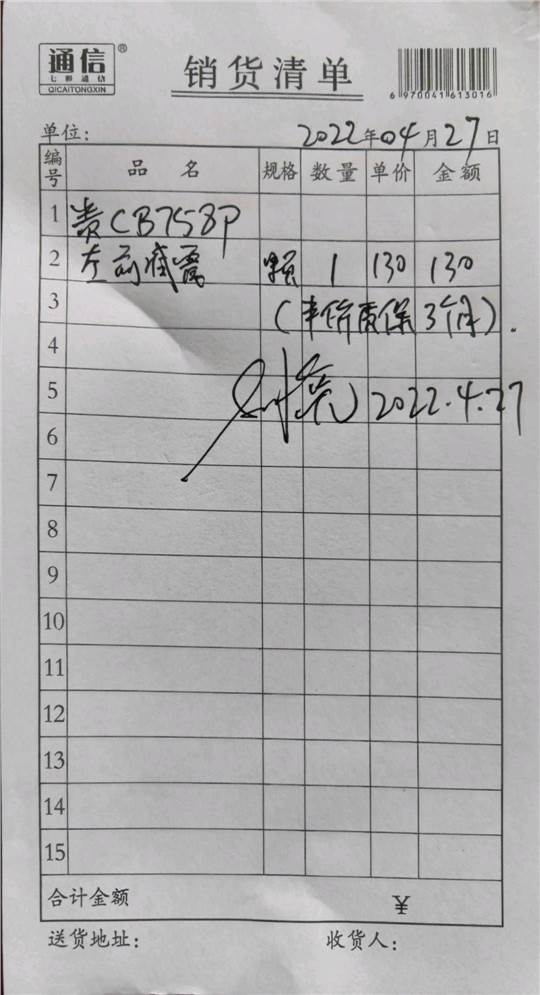 通信®
七彩通信
QICAITONGXIN
销货清单
6 970041 613016
单位: 2022年04月27日
编号 品名 规格 数量 单价 金额
1 贵CB758P
2 左前减震 1 130 130
3 (质保3个月).
4
5 2022.4.27
6
7
8
9
10
11
12
13
14
15
合计金额 ¥
送货地址: 收货人: